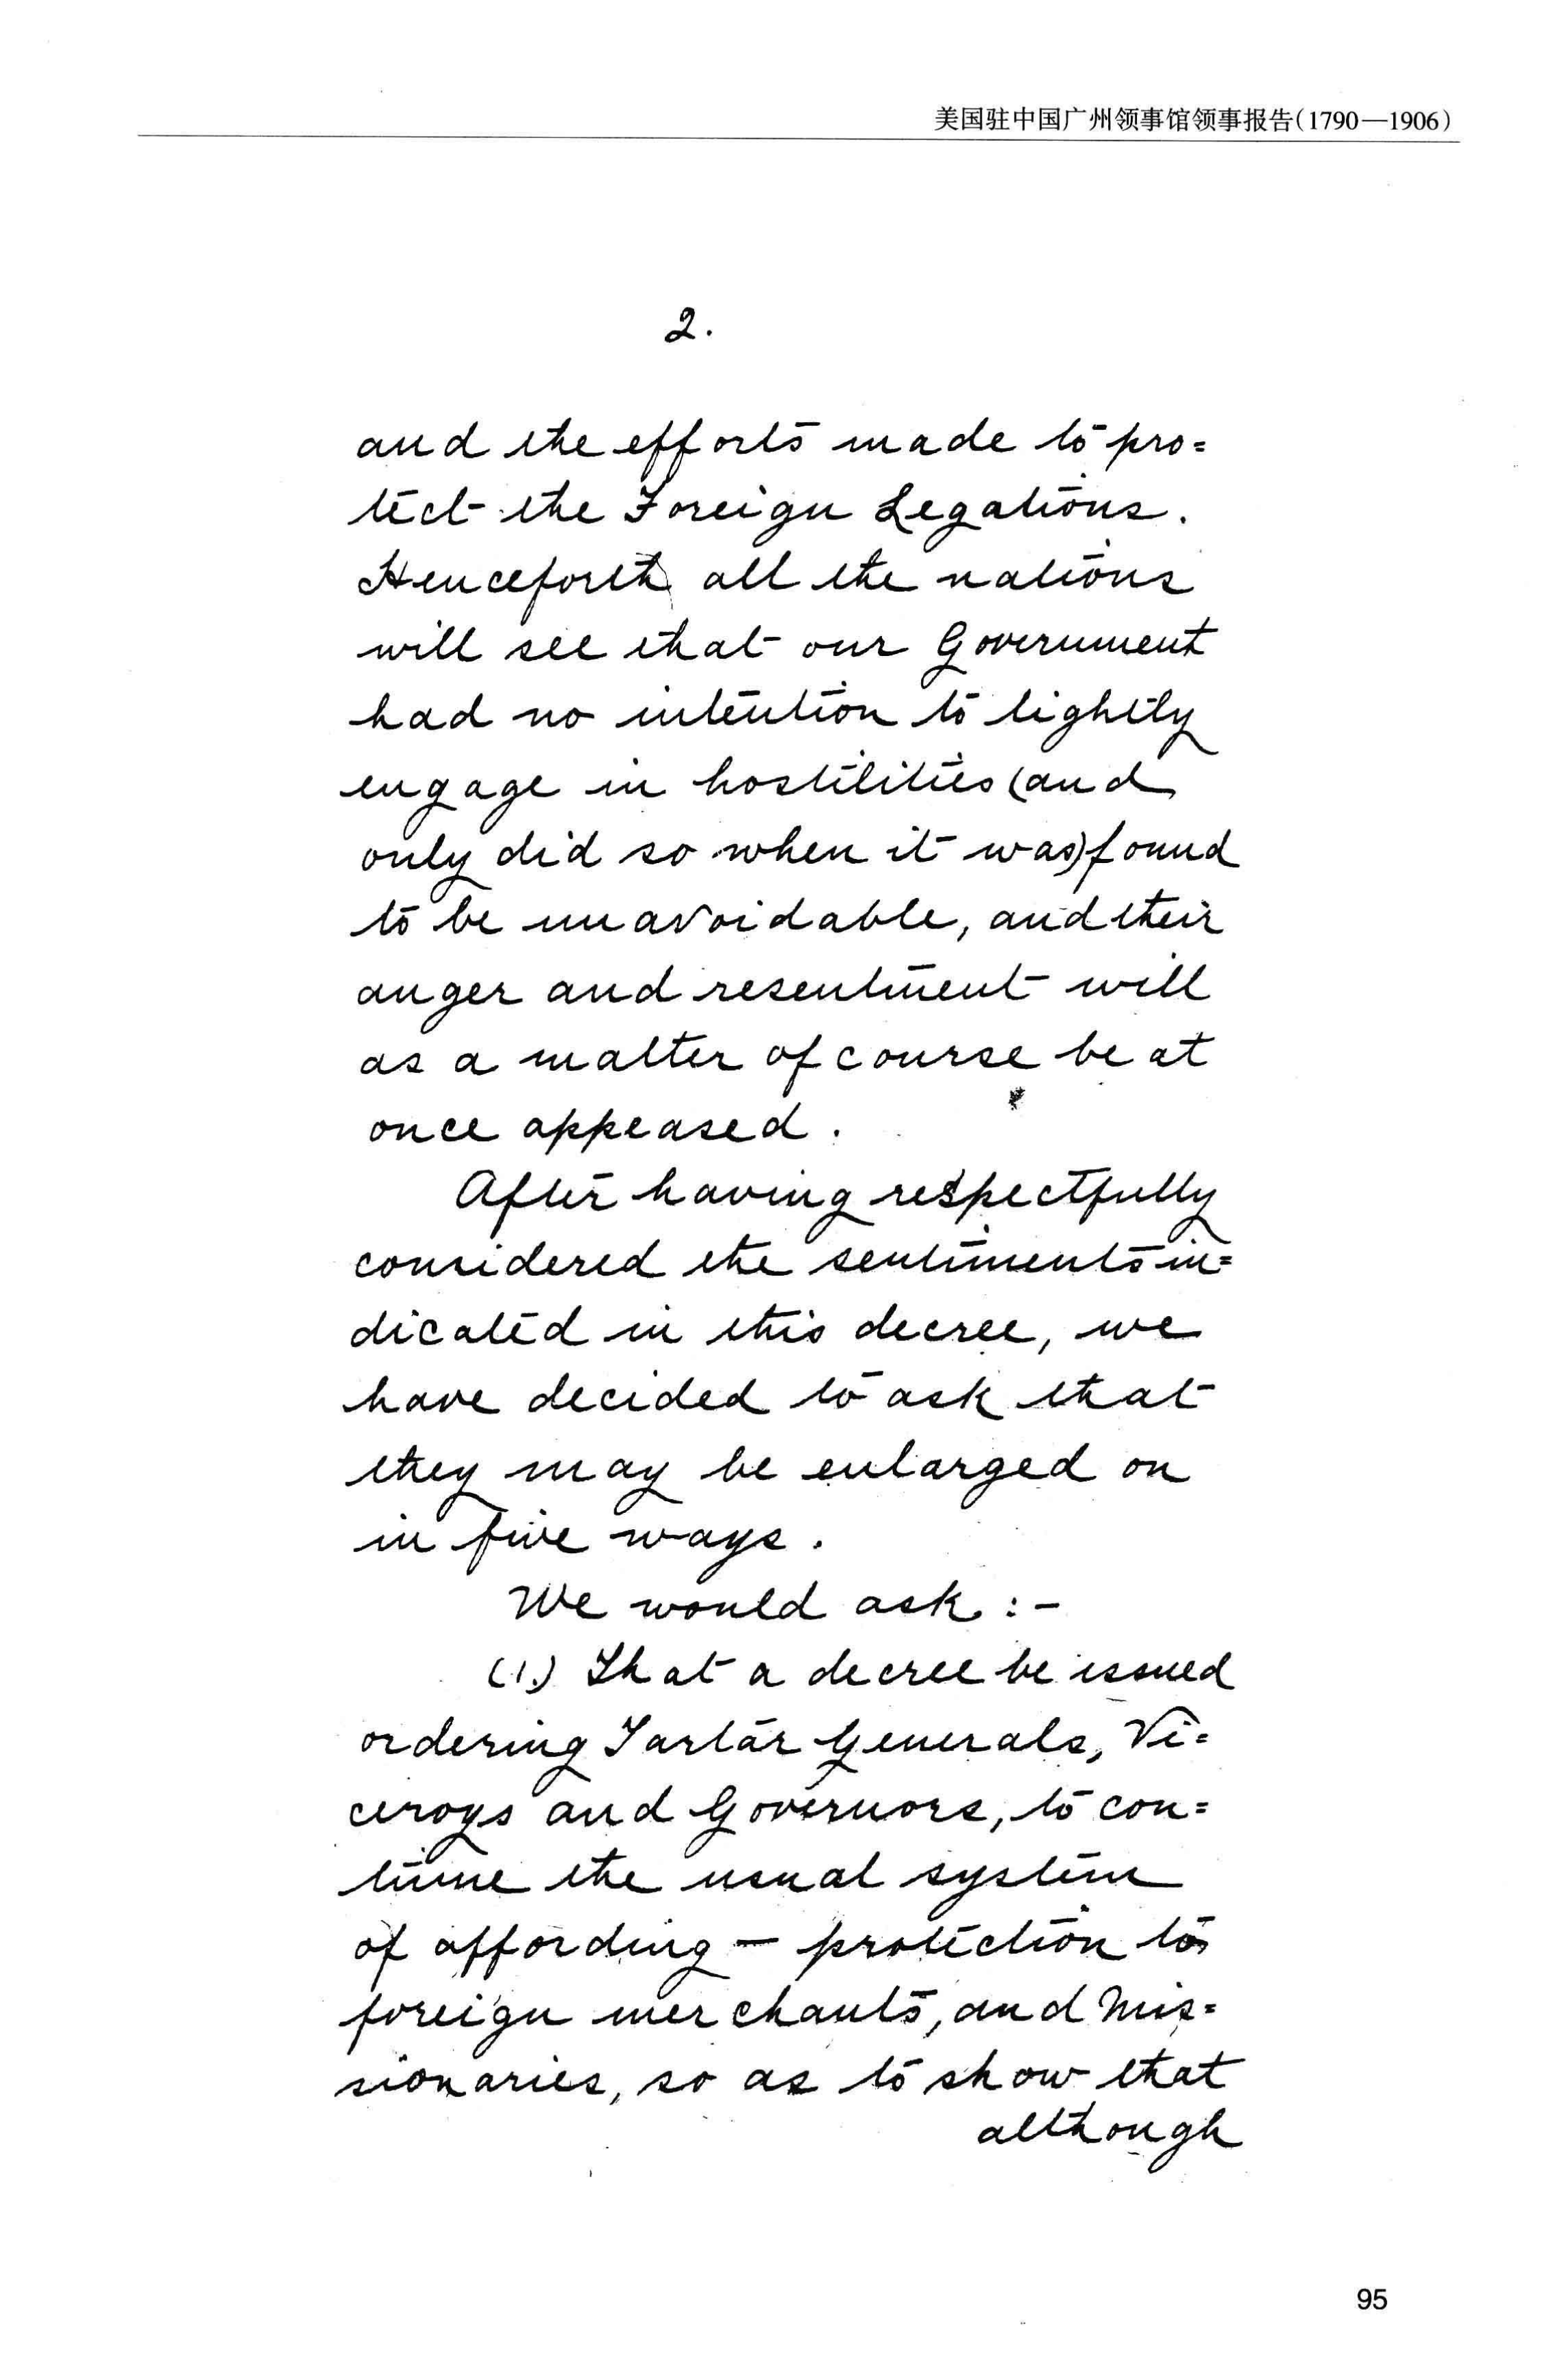 美国驻中国广州领事馆领事报告(1790—1906)
2.
and the efforts made to pro=
tect the Foreign Legations.
Henceforth all the nations
will see that our Government
had no intention to lightly
engage in hostilities (and
only did so when it was) found
to be unavoidable, and their
anger and resentment will
as a matter of course be at
once appeased.
After having respectfully
considered the sentiments in=
dicated in this decree, we
have decided to ask that
they may be enlarged on
in five ways.
We would ask :-
(1.) That a decree be issued
ordering Tartar Generals, Vi=
ceroys and Governors, to con=
tinue the usual system
of affording — protection to
foreign merchants, and Mis=
sionaries, so as to show that
although
95